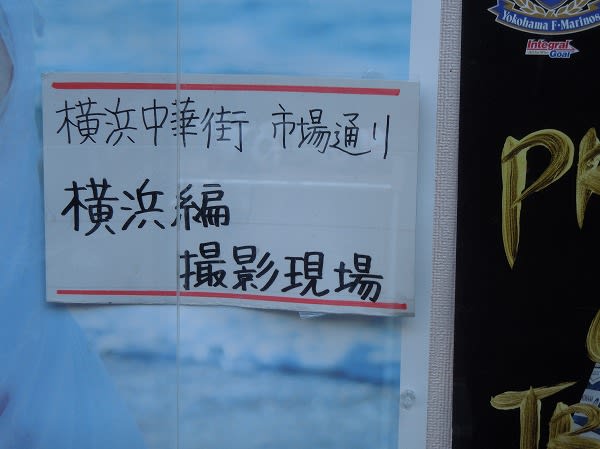 Yokohama F·Marinos
Integral
Goal
横浜中華街 市場通り
横浜編
撮影現場